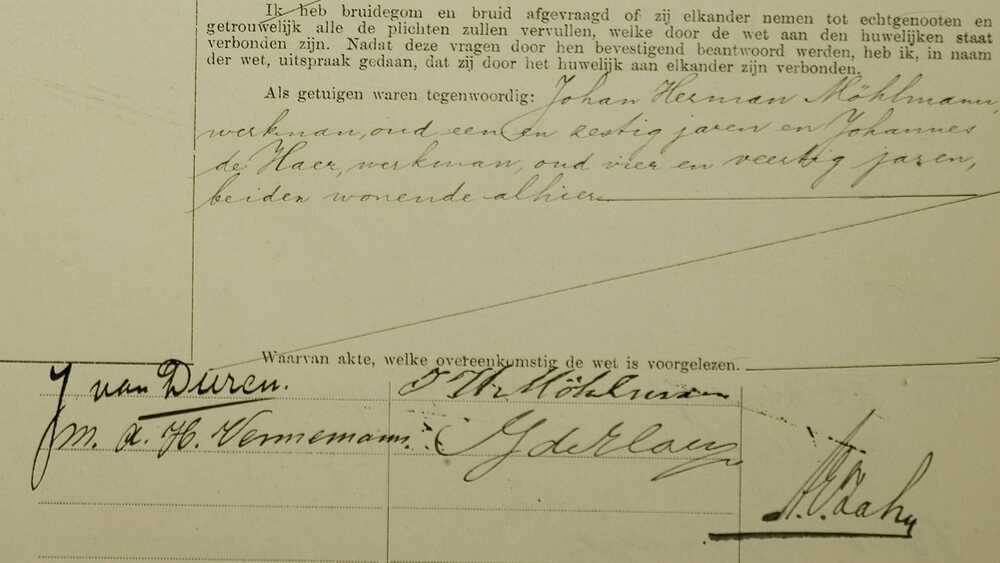 Ik heb bruidegom en bruid afgevraagd of zij elkander nemen tot echtgenooten en
getrouwelijk alle de plichten zullen vervullen, welke door de wet aan den huwelijken staat
verbonden zijn. Nadat deze vragen door hen bevestigend beantwoord werden, heb ik, in naam
der wet, uitspraak gedaan, dat zij door het huwelijk aan elkander zijn verbonden.
Als getuigen waren tegenwoordig: Johan Herman Möhlmann,
werkman, oud een en zestig jaren en Johannes
de Haer, werkman, oud vier en veertig jaren,
beiden wonende alhier
Waarvan akte, welke overeenkomstig de wet is voorgelezen.
J van Duren. J H Möhlmann
M. A. H. Vennemann